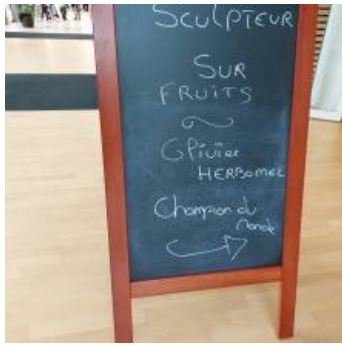 SCULPTEUR
SUR
FRUITS
Olivier
HERBOMEL
Champion du
Monde